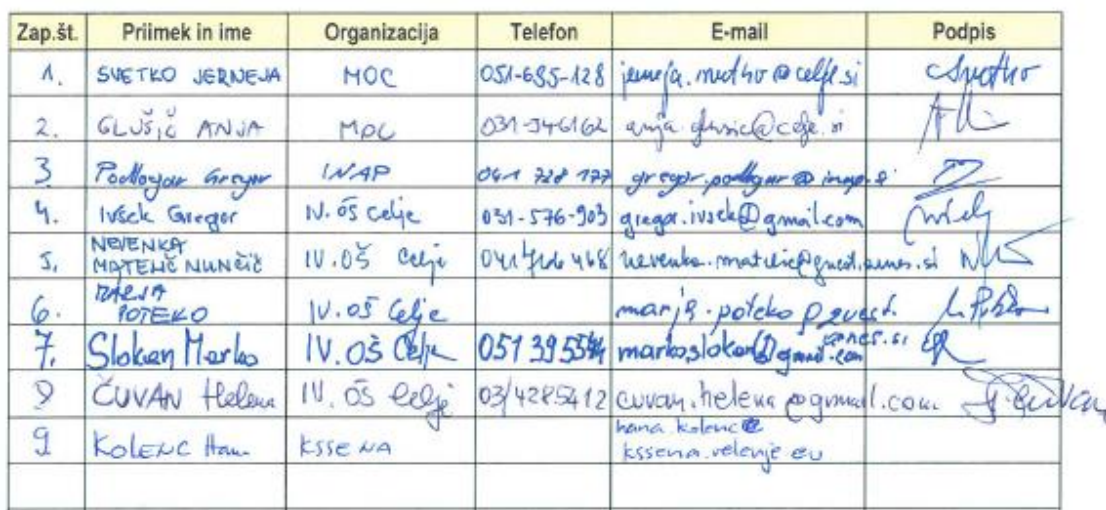 Zap.št. Priimek in ime Organizacija Telefon E-mail Podpis
1. SVETKO JERNEJA MOC 051-695-128 @celje.si
2. GLUŠIČ ANJA MOC 031-346162 anja.glusic@celje.si
3 Podlogar Gregor INAP 041 728 177 gregor.podlogar@inap.si
4. Ivšek Gregor IV. OŠ Celje 031-576-903 gregor.ivsek@gmail.com
NEVENKA
5. MATELIČ NUNČIČ IV. OŠ Celje
MARJA
6. POTEKO IV. OŠ Celje marja.poteko@guest.
arnes.si
7. Slokan Marko IV. OŠ Celje marko.slokan@gmail.com
8 ČUVAN Helena IV. OŠ Celje 03/4285412 cuvan.helena@gmail.com
hana.kolenc@
9 KOLENC Hana KSSENA kssena.velenje.eu